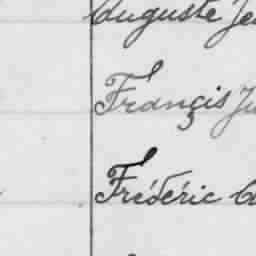 Auguste
François
Frédéric